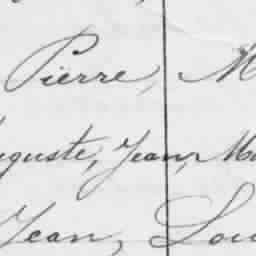 Pierre, M
guste, Jean, Ma
Jean, Lou